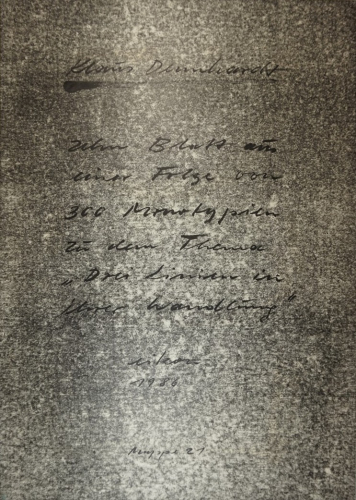 Klaus Dennhardt
Zehn Blatt aus
einer Folge von
300 Monotypien
zu dem Thema
„Drei Linien in
ihrer Wandlung"
eikon
1986
Mappe 21